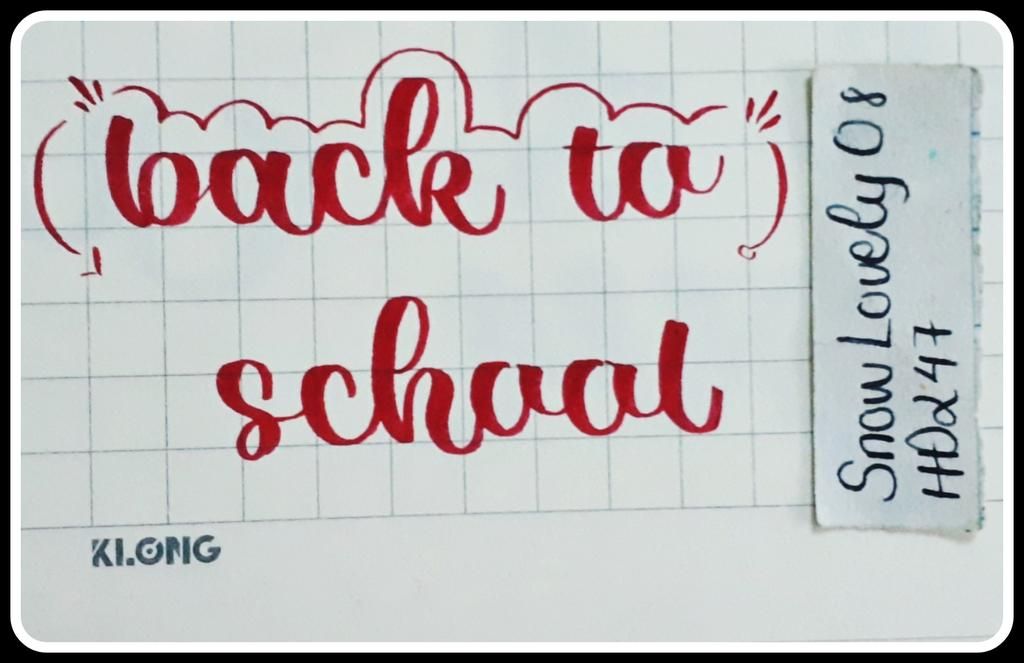 back to
school
KLONG
Snow Lovely 08
HD247